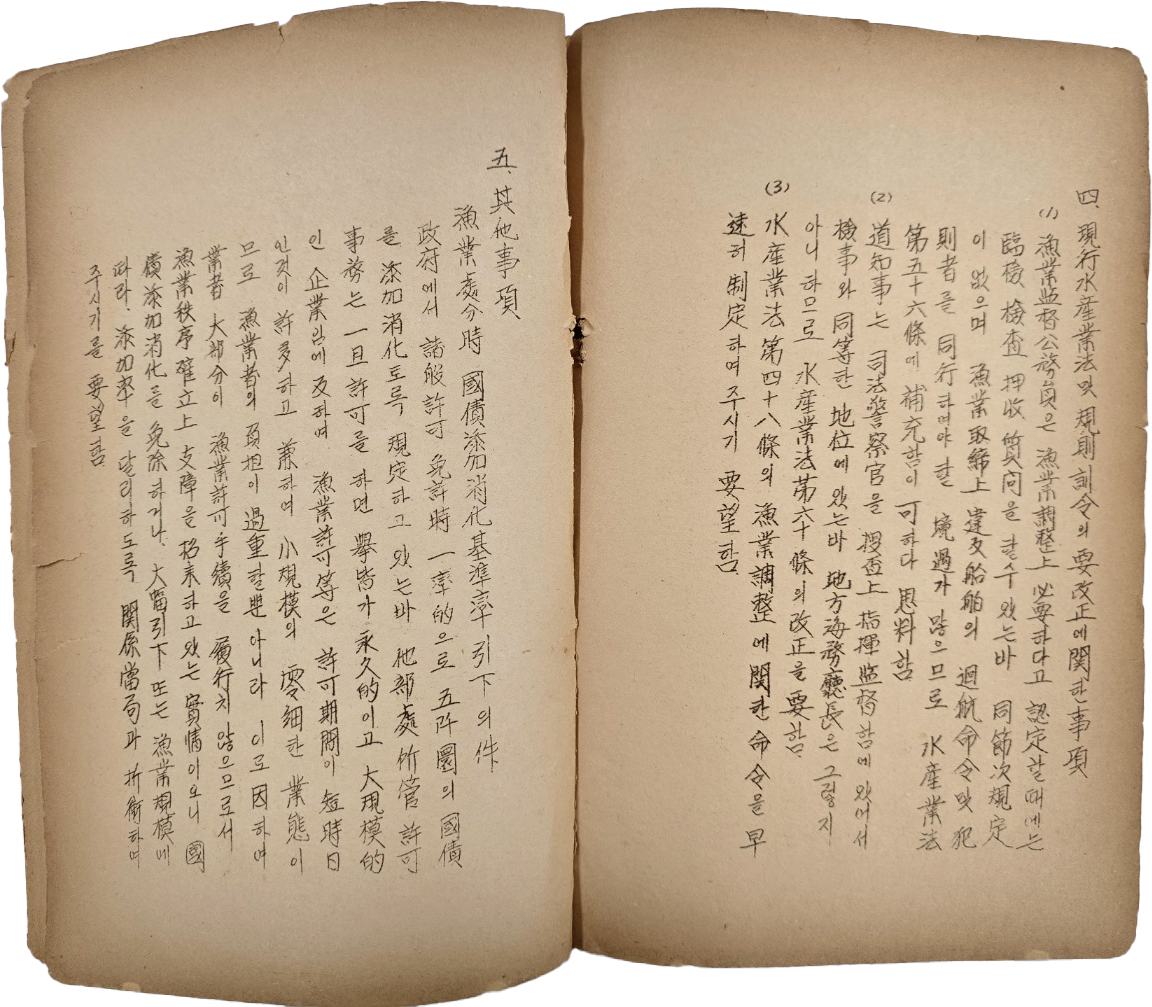 四、現行水産業法및 規則訓令의 要改正에 關한 事項
(1) 漁業監督公務員은 漁業調整上 必要하다고 認定할때에는
臨檢 檢查 押收 質問을 할수 있는바 同節次規定
이 없으며 漁業取締上 違反船舶의 廻航命令및 犯
則者를 同行하여야 할 境遇가 많으므로 水産業法
第五十六條에 補充함이 可하다 思料함
(2) 道知事는 司法警察官을 搜查上 指揮監督함에 있어서
檢事와 同等한 地位에 있는바 地方海務廳長은 그렇지
아니하므로 水産業法第六十條의 改正을 要함.
(3) 水産業法第四十八條의 漁業調整에 関한 命令을 早
速히 制定하여 주시기 要望함.
五、其他事項
漁業處分時 國債添加消化基準率引下의件.
政府에서 諸般許可 免許時 一率的으로 五阡圜의 國債
를 添加消化토록 規定하고 있는바 他部處所管 許可
事務는 一旦許可를 하면 擧皆가 永久的이고 大規模的
인 企業임에 反하여 漁業許可等은 許可期間이 短時日
인것이 許多하고 兼하여 小規模의 零細한 業態이
므로 漁業者의 負担이 過重할뿐 아니라 이로因하여
業者 大部分이 漁業許可手續을 履行치 않으므로서
漁業秩序確立上 支障을 招來하고있는 實情이오니 國
債添加消化를 免除하거나、大幅引下 또는 漁業規模에
따라、添加率을 달리하도록 関係當局과 折衝하여
주시기를 要望함